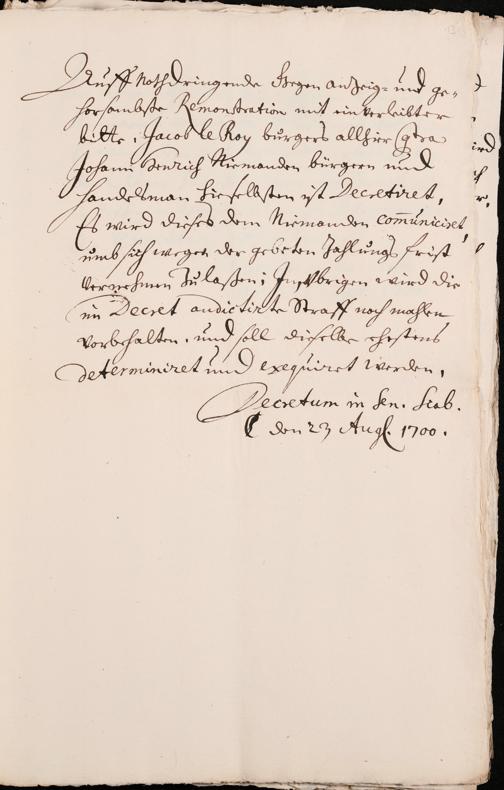 Auff Nothdringende Gegen anZeig- und ge-
horsambste Remonstration mit einverleibter
bitte, Jacob le Roy burgers allhier Contra
Johann Henrich Niemanden bürgern und
Handelsman hieselbsten ist Decretiret,
Es wird dieses dem Niemanden com̄uniciret,
umb sich wegen der gebeten Zahlungs frist
vernehmen Zulaßen; Im Vbrigen wird die
im Decret andictirte Straff noch mahlen
vorbehalten, und soll dieselbe ehestens
determiniret und exequiret werden,
Decretum in Sen. Scab.
den 23 Aug. 1700.